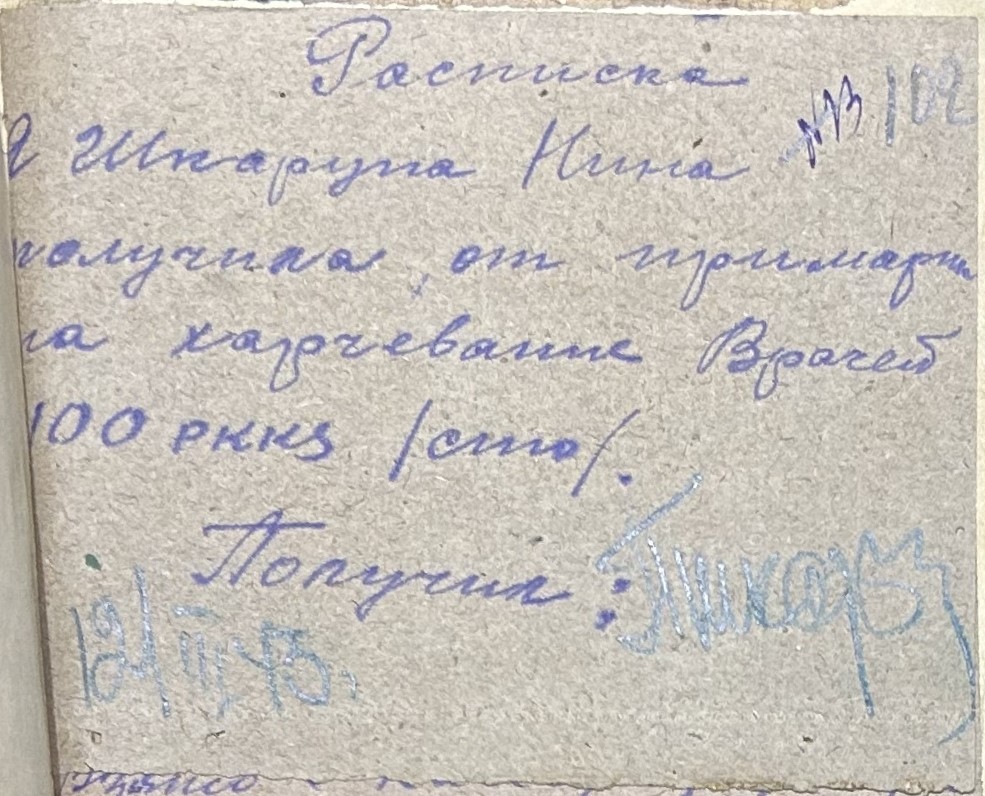 Расписка
№ 102
Я Шкарупа Нина
получила от примарии
на харчевание Врачей
100 РККЗ /сто/.
Получил:
12/III 43.